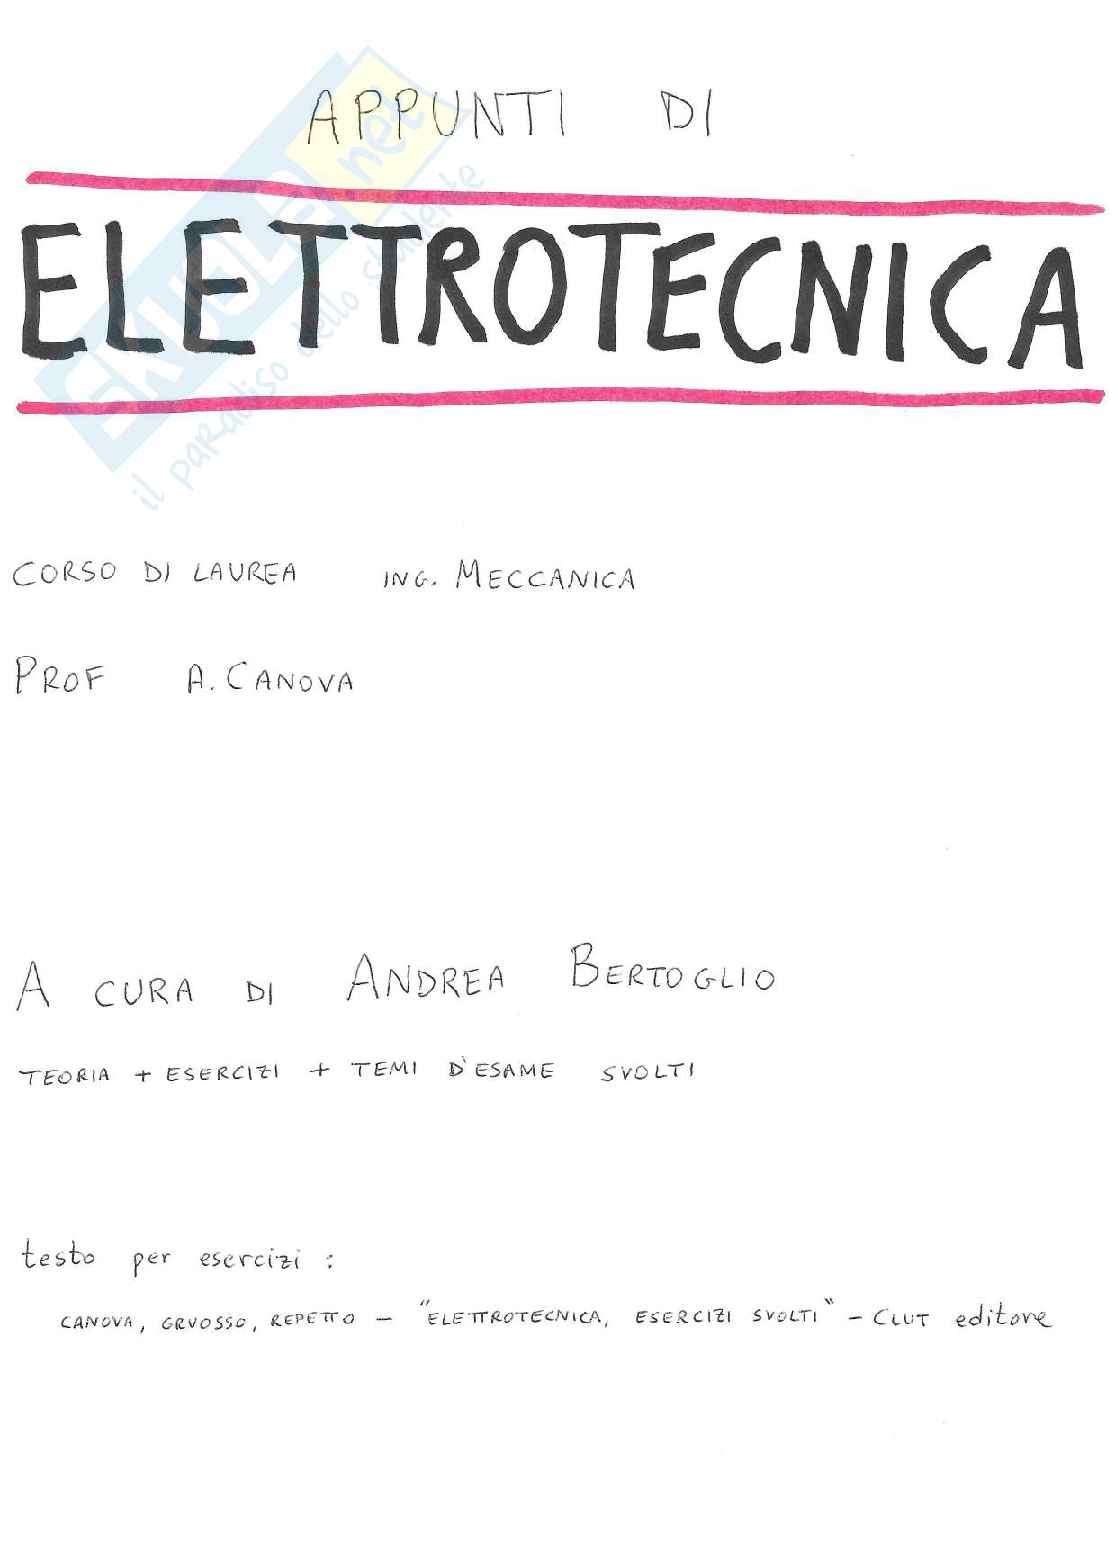 APPUNTI DI
ELETTROTECNICA
SKUOLA.net
il paradiso dello studente
CORSO DI LAUREA ING. MECCANICA
PROF A. CANOVA
A CURA DI ANDREA BERTOGLIO
TEORIA + ESERCIZI + TEMI D'ESAME SVOLTI
testo per esercizi :
CANOVA, GRUOSSO, REPETTO - "ELETTROTECNICA, ESERCIZI SVOLTI" - CLUT editore